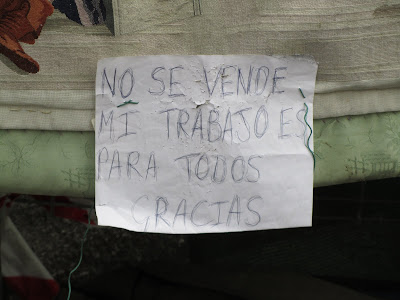 NO SE VENDE,
MI TRABAJO ES
PARA TODOS
GRACIAS